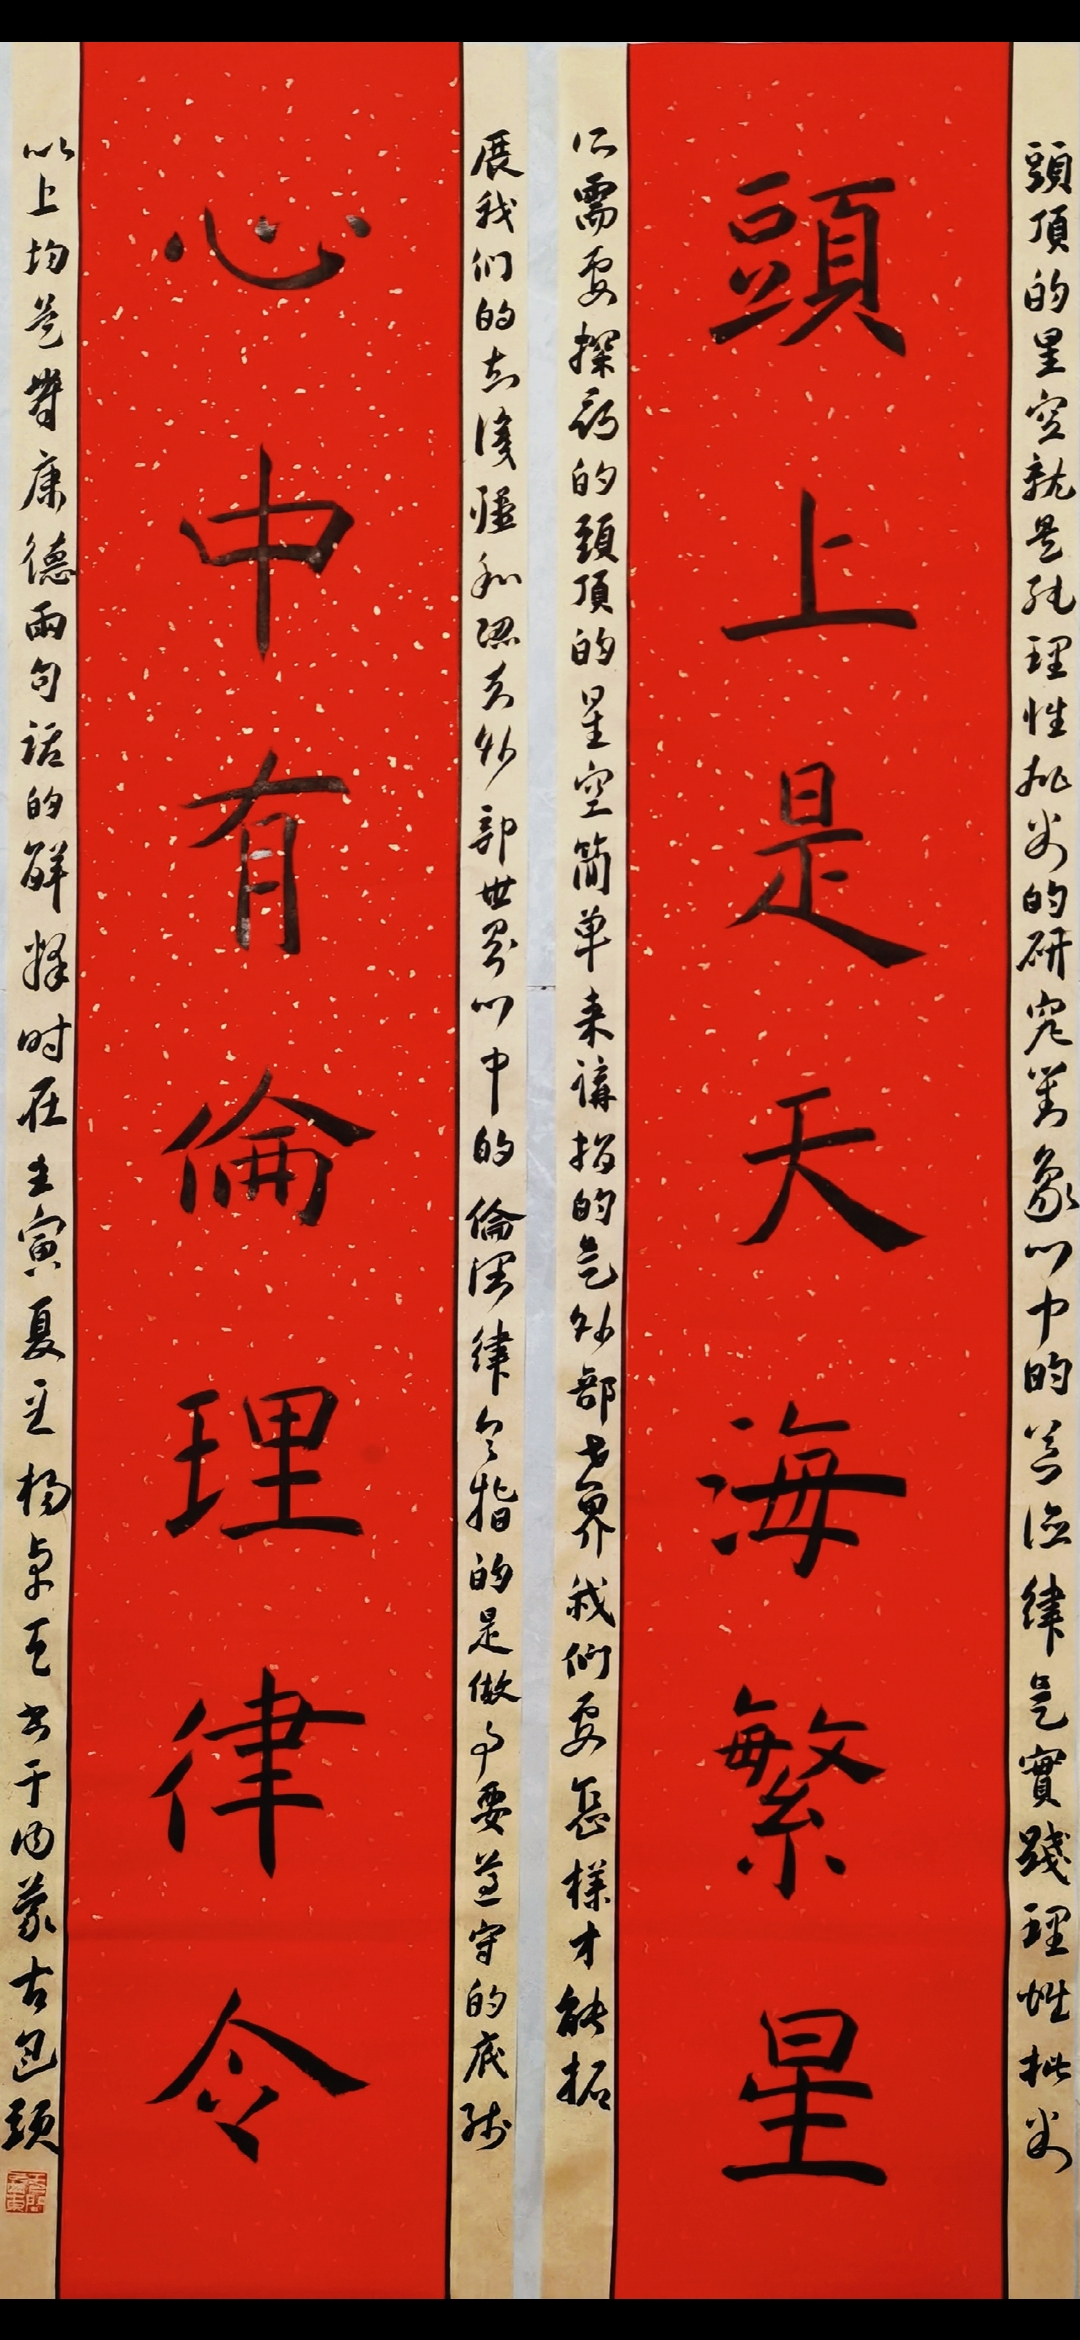 頭頂的星空就是純理性批判的研究對象心中的道德律是實踐理性批判
頭上是天海繁星
所需要探究的頭頂的星空簡单来講指的是外部世界我们要怎樣才能拓
展我们的知識疆和認知外部世界心中的倫理律令指的是做事要遵守的底線
心中有倫理律令
以上均是對康德兩句話的解釋时在壬寅夏至楊卓 书于内蒙古包頭